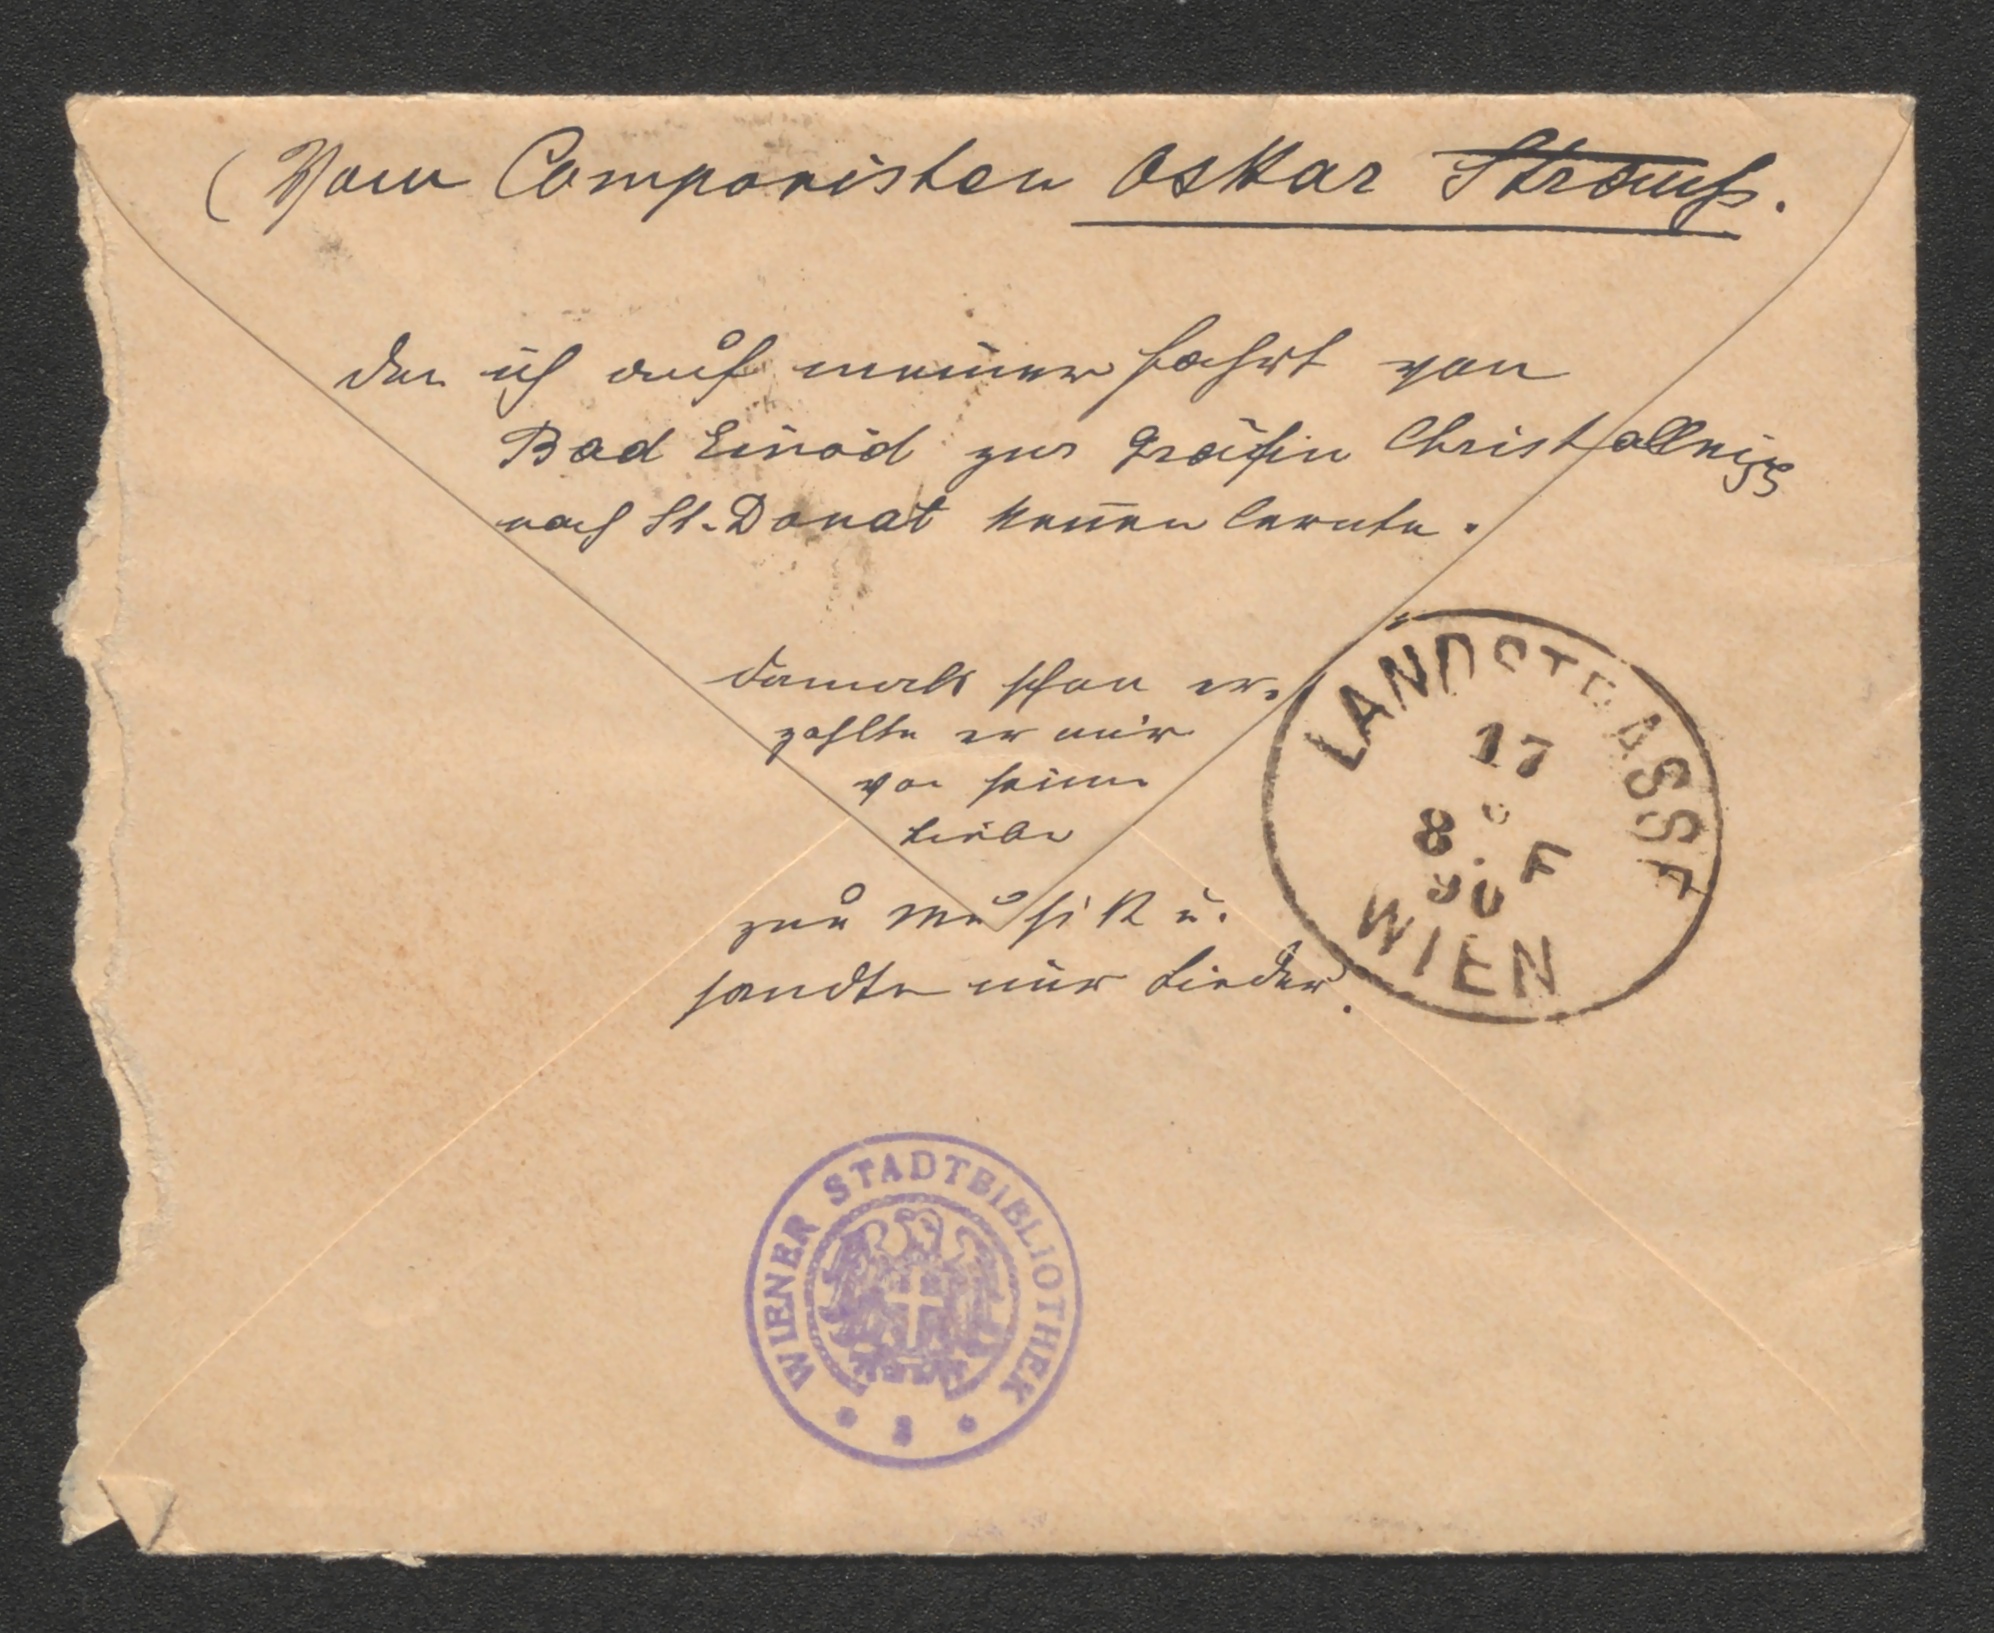 (Vom Componisten Oskar Strauß.
den ich auf meiner Fahrt von
Bad Einöd zur Gräfin Christallnigg
nach St. Donat kennen lernte.
damals schon er-
zählte er mir
von seiner
Liebe
zur Musik u.
sandte mir Lieder.
LANDSTRASSE
17
8
90 F
WIEN
WIENER STADTBIBLIOTHEK